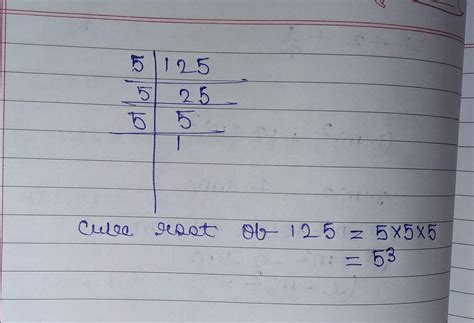 5 | 125
5 | 25
5 | 5
| 1
cube root of 125 = 5×5×5
= 5³